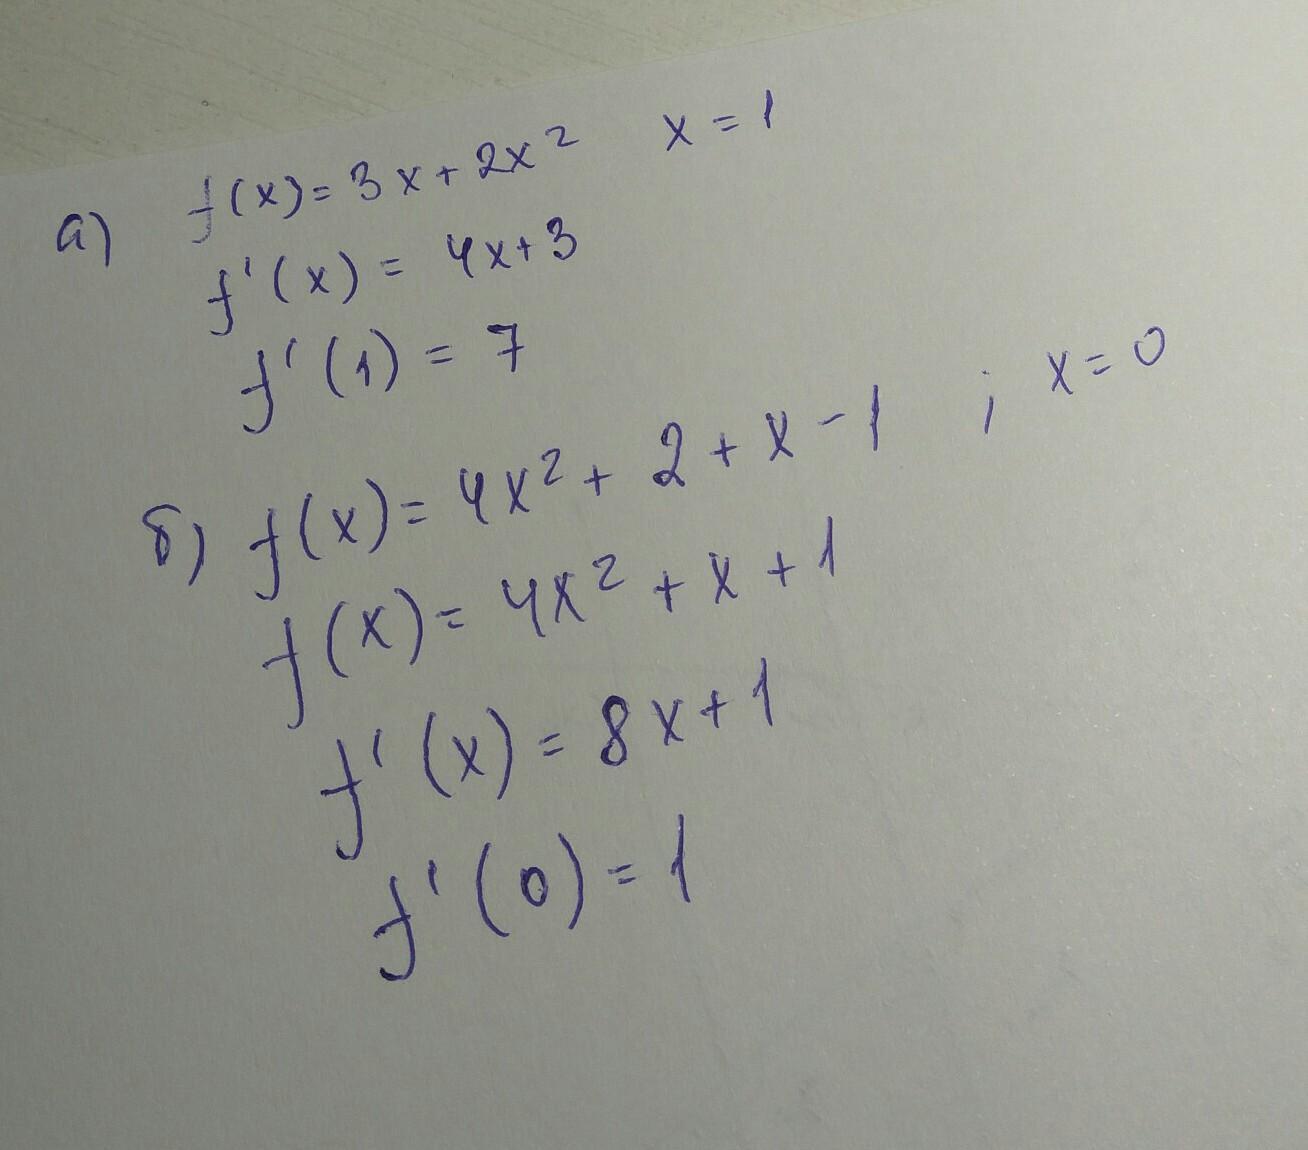 а) f(x)=3x+2x² x=1
f'(x)= 4x+3
f'(1)=7
б) f(x)=4x²+2+x-1 ; x=0
f(x)=4x²+x+1
f'(x)=8x+1
f'(0)=1